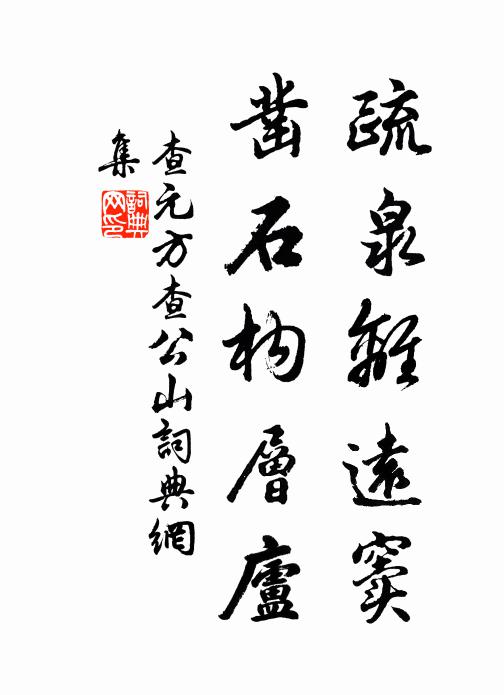 疏泉離遠竇
凿石构層廬
查元方查公山詞典網
集
詞典
网印